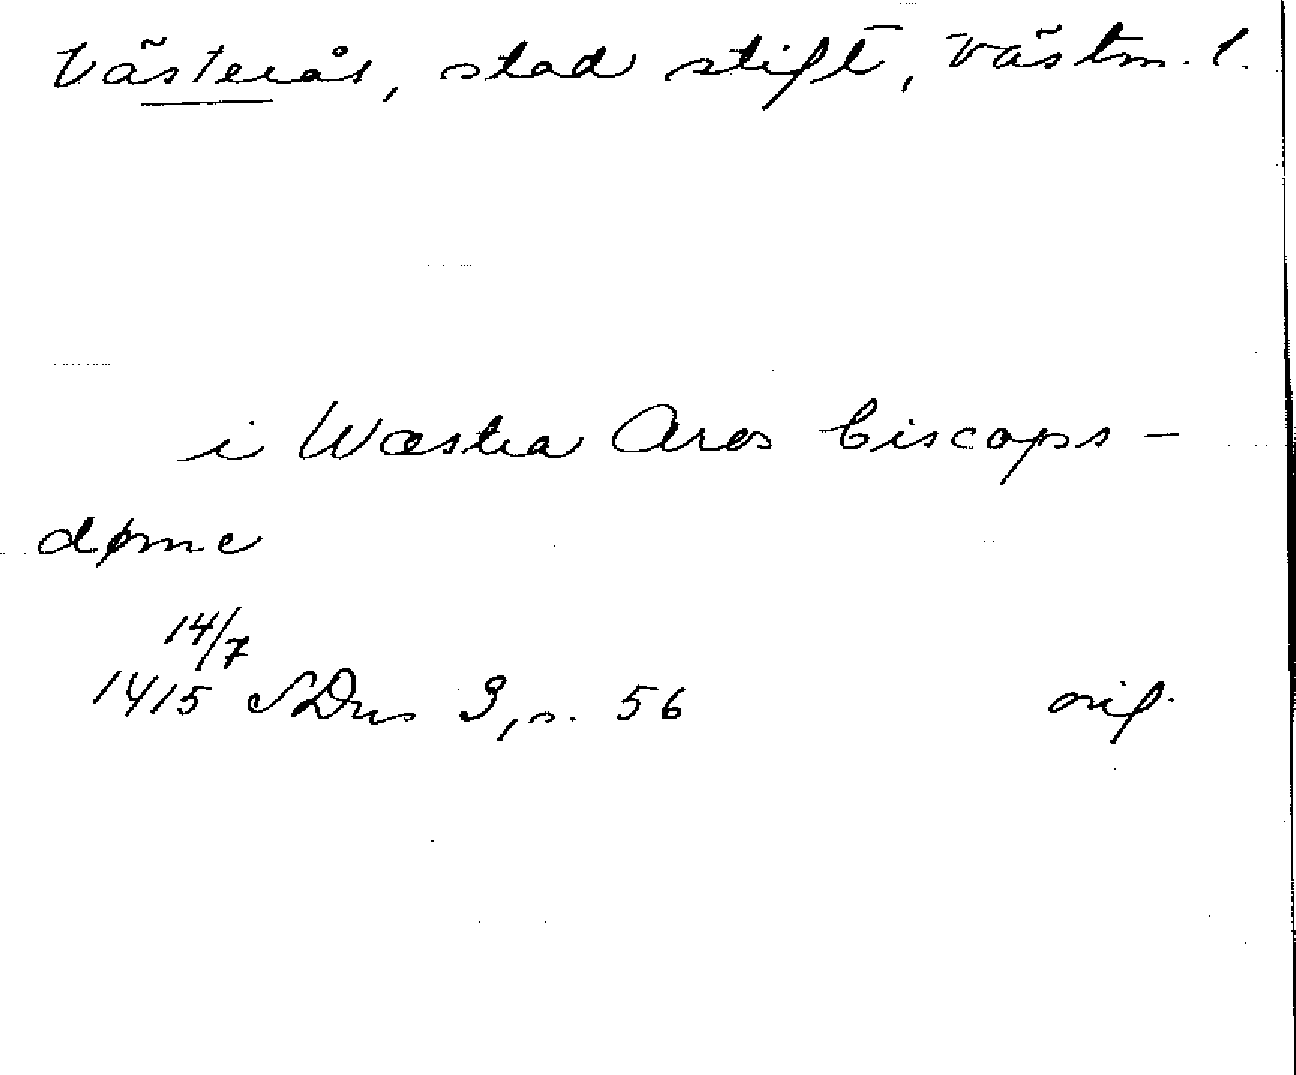 Västerås, stad stift, Västm. l.
i Wæstra Aros biscops-
døme
14/7
1415 SDns 3, s. 56 orig.